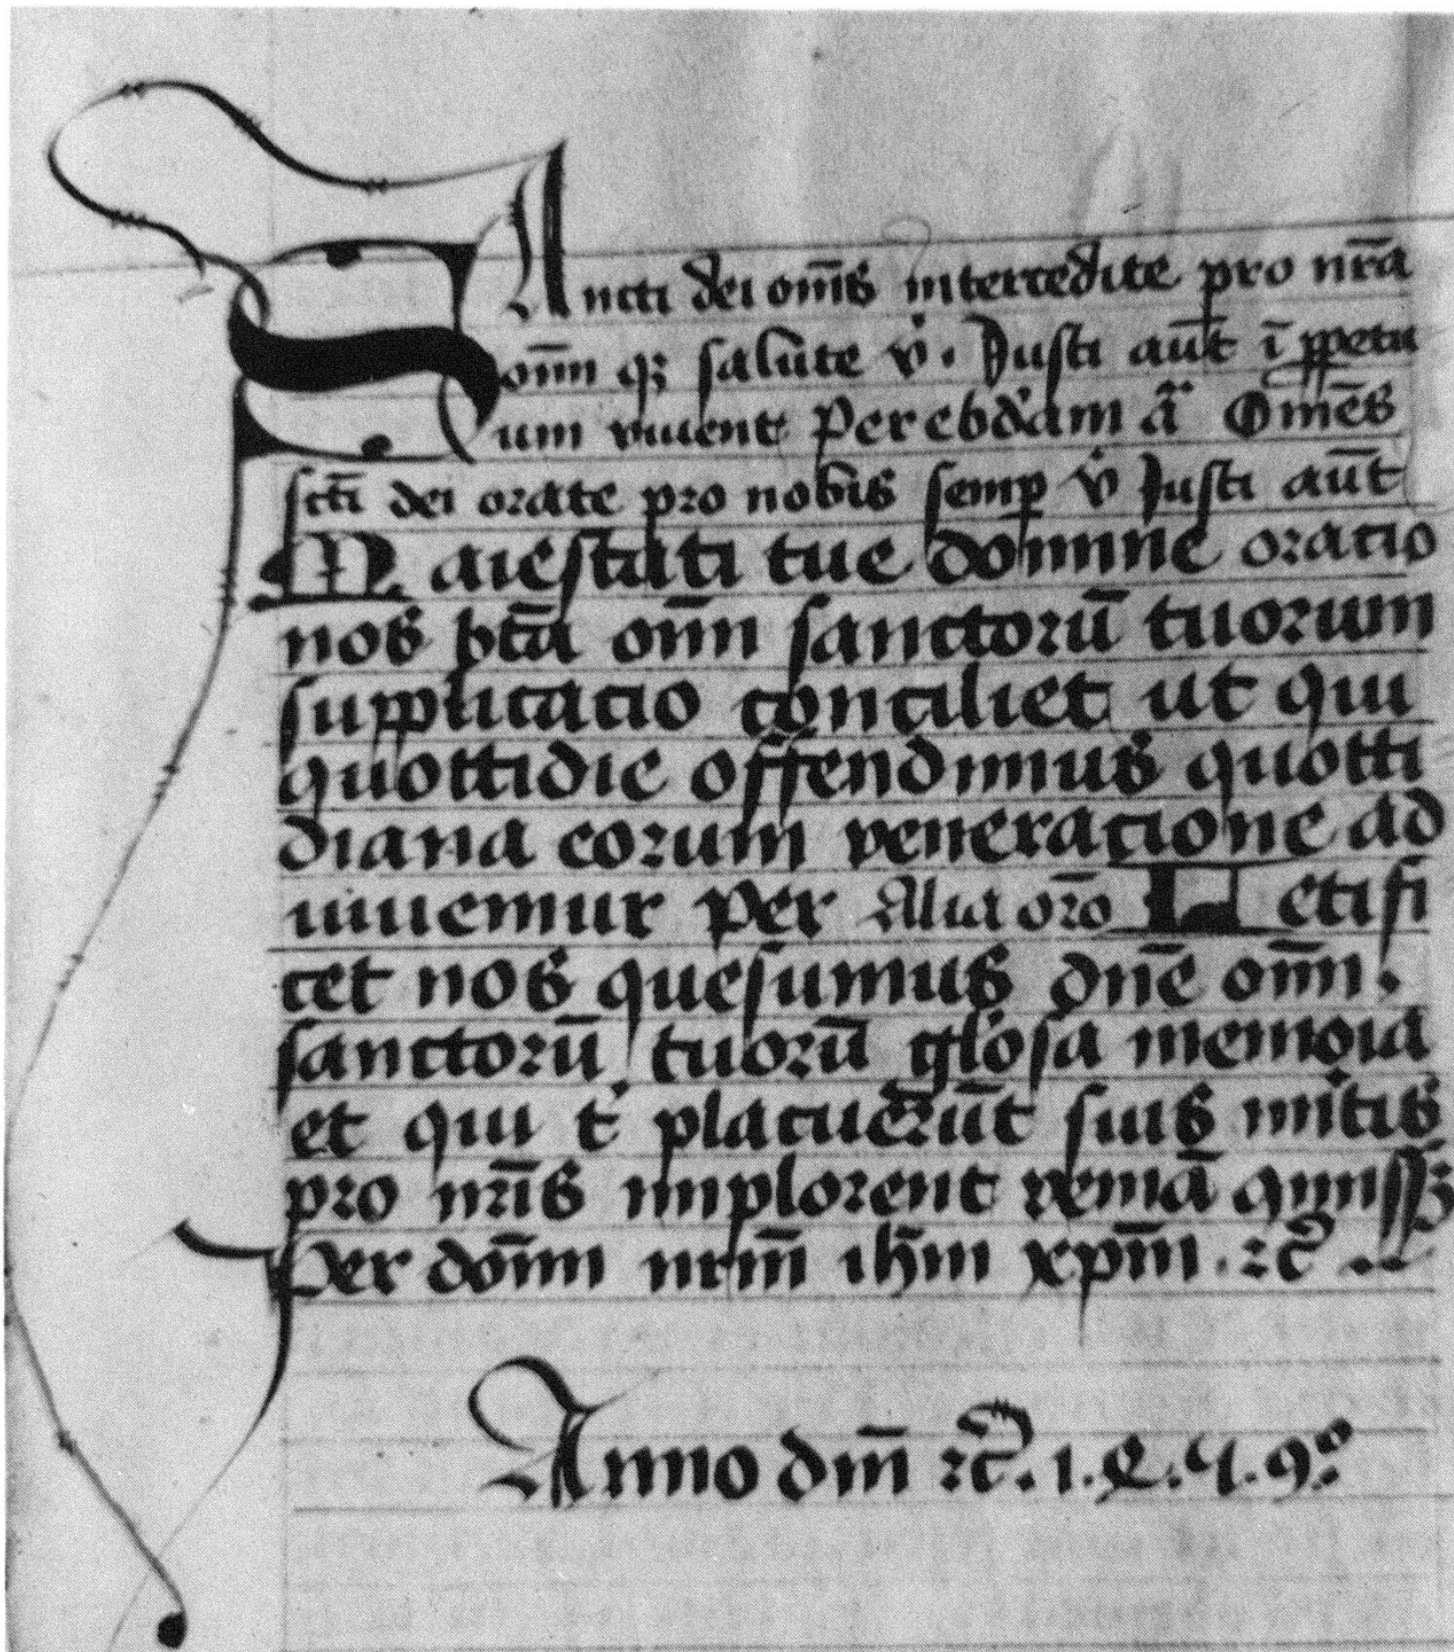 SAncti dei om̅s intercedite pro nr̅a
om̅ qꝫ salu̅te v̇. Justi au̅t i̅ ꝑpetu
um viuent Per ebd̓am a̅ Om̅es
sct̅i dei orate pro nob̅is semꝑ v̇ Justi au̅t
Maiestati tue domine oracio
nos bt̅a om̅ sanctoru̅ tuorum
supplicacio conciliet ut qui
quottidie offendimus quotti
diana eorum veneracione ad
iuuemur Per Alia or̅o Letifi
cet nos quesumus dn̅e om̅.
sanctoru̅ tuoru̅ gl̓osa memoia
et qui t̓ placueru̅t suis m̓itis
pro nr̅is implorent venia̅
Per dom̅ nrm̅ ih̅m xp̅m . ⁊c̅
Anno dm̅ ⁊c̅. 1. 4. 9º